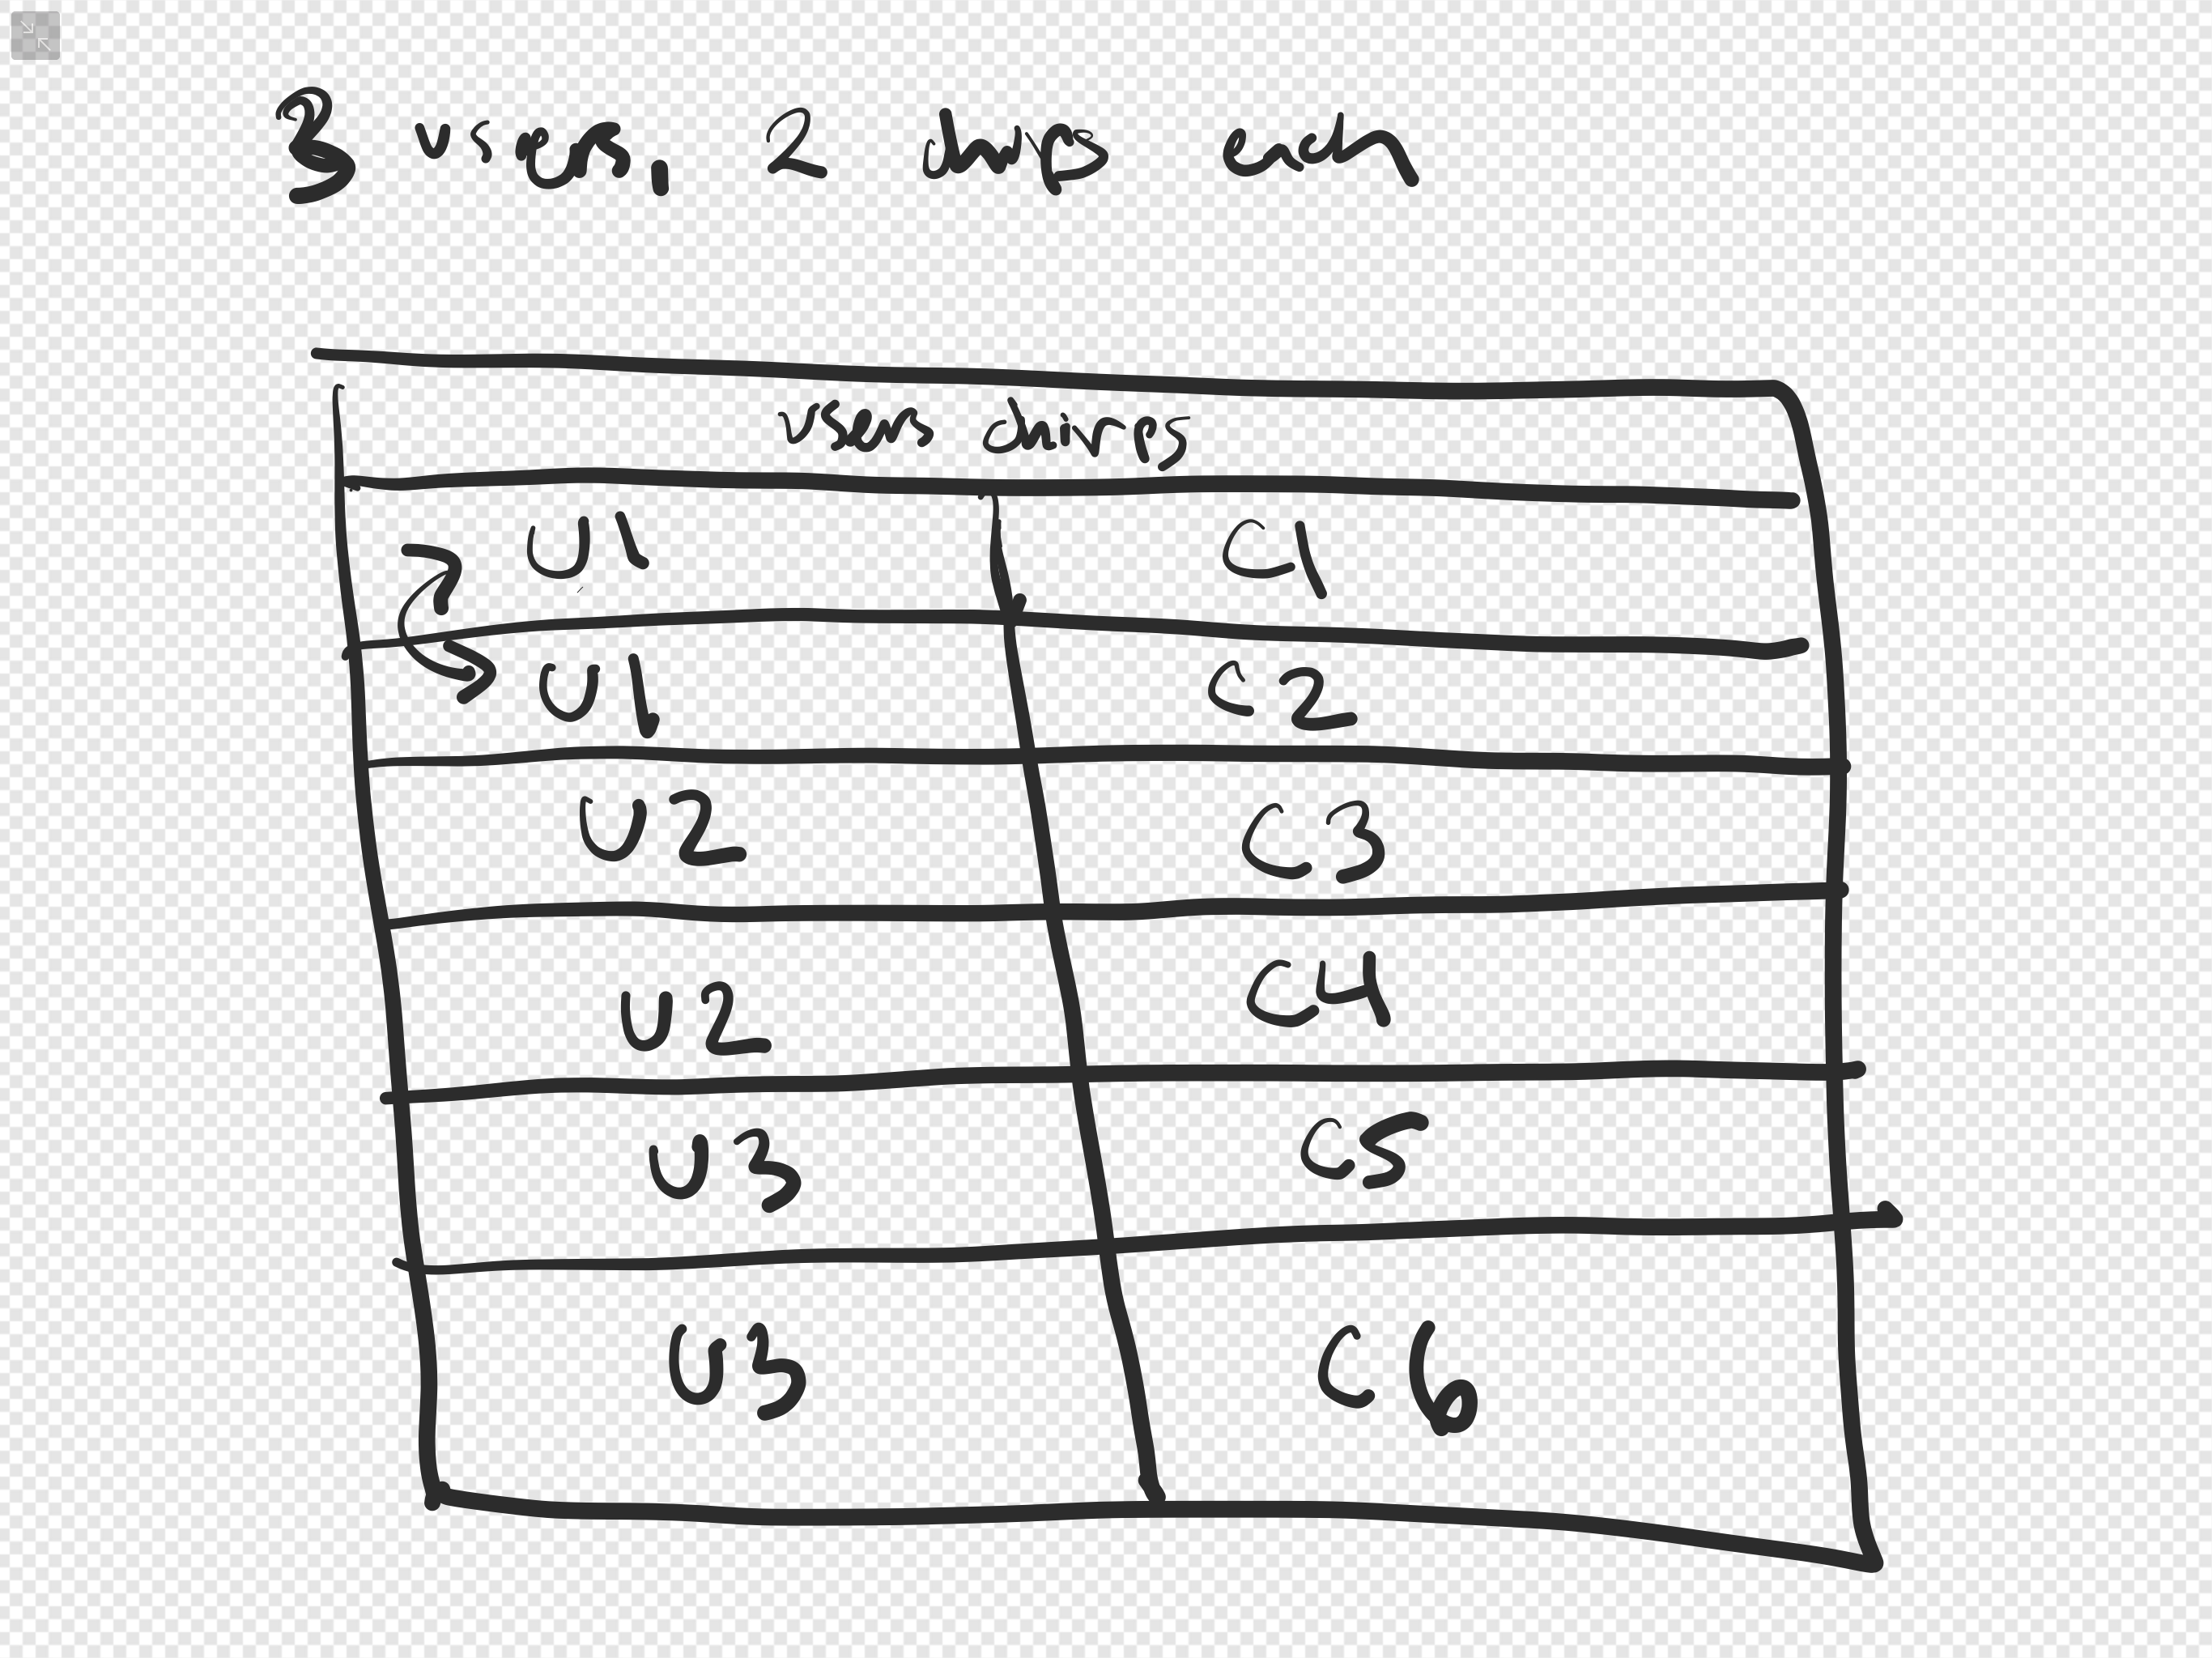 3 users, 2 chirps each
users chirps
U1 C1
U1 C2
U2 C3
U2 C4
U3 C5
U3 C6